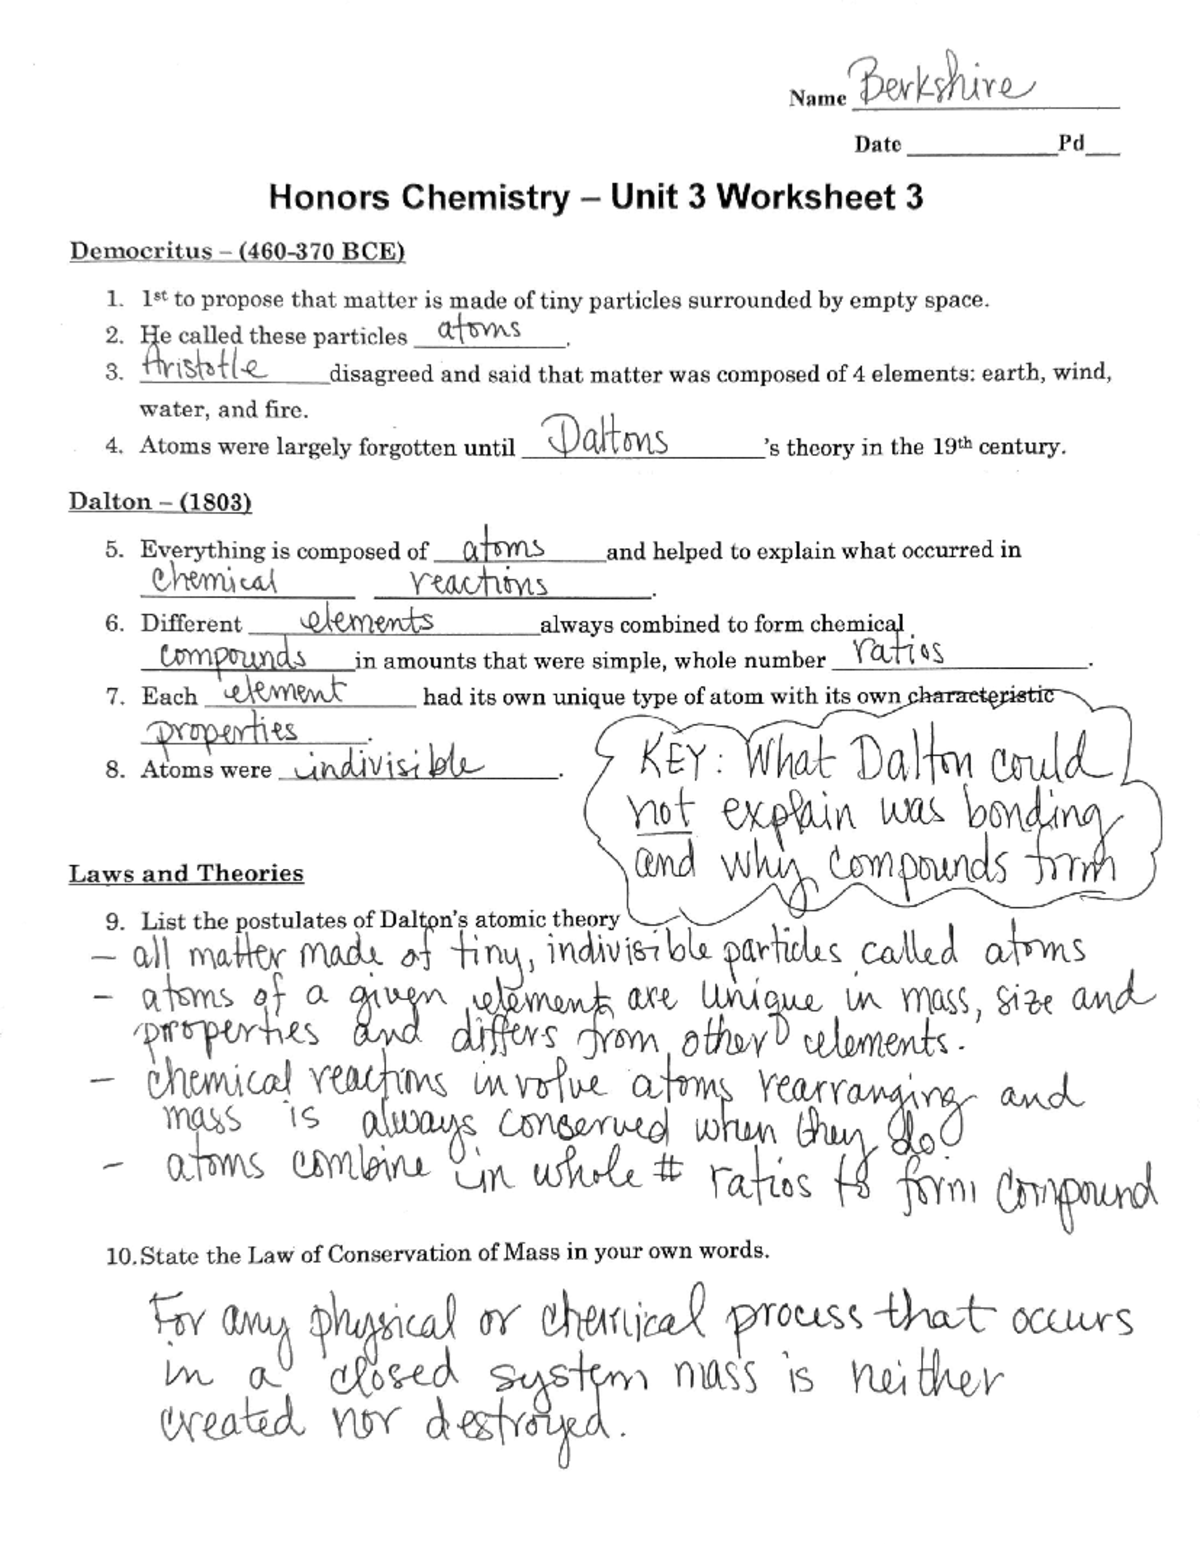 Name Berkshire
Date ____________Pd___
Honors Chemistry – Unit 3 Worksheet 3
Democritus – (460-370 BCE)
1. 1st to propose that matter is made of tiny particles surrounded by empty space.
2. He called these particles atoms.
3. Aristotle disagreed and said that matter was composed of 4 elements: earth, wind,
water, and fire.
4. Atoms were largely forgotten until Daltons 's theory in the 19th century.
Dalton – (1803)
5. Everything is composed of atoms and helped to explain what occurred in
chemical reactions.
6. Different elements always combined to form chemical
compounds in amounts that were simple, whole number ratios.
7. Each element had its own unique type of atom with its own characteristic
properties.
8. Atoms were indivisible.
KEY: What Dalton could
not explain was bonding
and why compounds form
Laws and Theories
9. List the postulates of Dalton's atomic theory
– all matter made of tiny, indivisible particles called atoms
– atoms of a given element are unique in mass, size and
properties and differs from other elements.
– chemical reactions involve atoms rearranging and
mass is always conserved when they do
– atoms combine in whole # ratios to form compound
10. State the Law of Conservation of Mass in your own words.
For any physical or chemical process that occurs
in a closed system mass is neither
created nor destroyed.